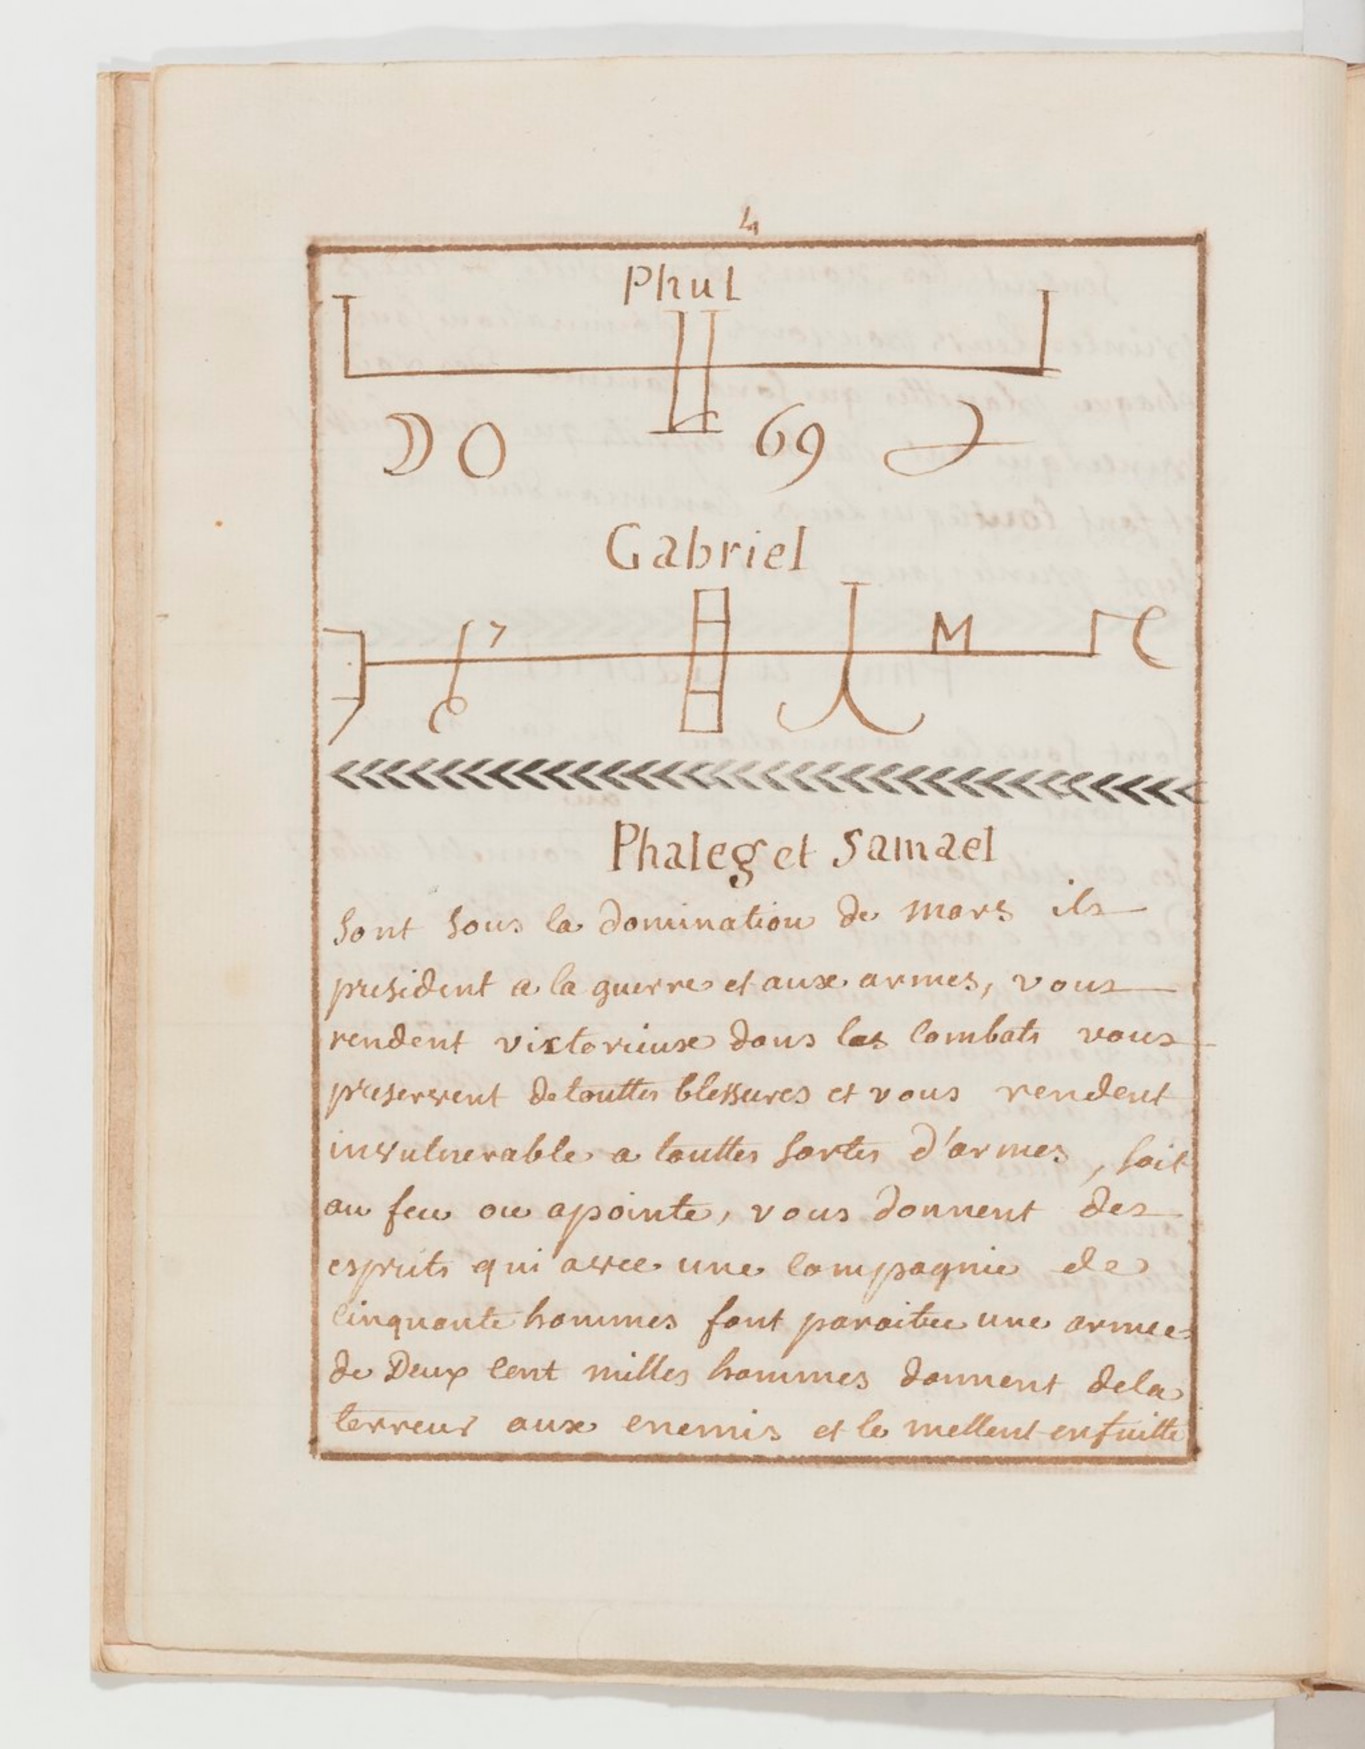 4
Phul
DO 69
Gabriel
M
Phaleg et Samael
sont sous la domination de mars ils
president a la guerre et aux armes, vous
rendent victorieux dans les combats vous
preservent de touttes blessures et vous rendent
invulnerable a touttes sortes d'armes, soit
au feu ou apointe, vous donnent des
esprits qui avec une compagnie de
cinquante hommes font paraitre une armee
de Deux cent milles hommes donnent dela
terreur aux enemis et le mettent enfuitte